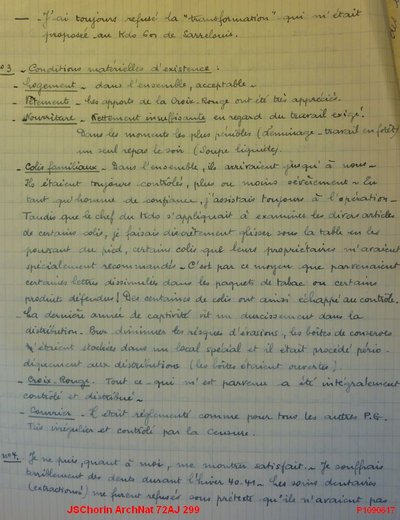 — J'ai toujours refusé la "transformation" qui m'était
proposée au Kdo 601 de Sarrelouis.
n°3 - Conditions matérielles d'existence :
- Logement - dans l'ensemble, acceptable -
- Vêtements - Les apports de la Croix-Rouge ont été très appréciés.
- Nourriture - Nettement insuffisante en regard du travail exigé.
Dans les moments les plus pénibles (déminage - travail en forêt)
un seul repas le soir (soupe liquide).
- Colis familiaux - Dans l'ensemble, ils arrivaient jusqu'à nous -
Ils étaient toujours contrôlés, plus ou moins sévèrement - En
tant qu'homme de confiance, j'assistais toujours à l'opération -
Tandis que le chef du Kdo s'appliquait à examiner les divers articles
de certains colis, je faisais discrètement glisser sous la table en les
poussant du pied, certains colis que leurs propriétaires m'avaient
spécialement recommandés - C'est par ce moyen que parvenaient
certaines lettres dissimulées dans les paquets de tabac ou certains
produits défendus ! Des centaines de colis ont ainsi échappé au contrôle.
La dernière année de captivité vit un durcissement dans la
distribution. Pour diminuer les risques d'évasions, les boîtes de conserves
étaient stockées dans un local spécial et il était procédé pério-
diquement aux distributions (les boîtes étaient ouvertes).
- Croix-Rouge. Tout ce qui m'est parvenu a été intégralement
contrôlé et distribué -
- Courrier - Il était réglementé comme pour tous les autres P.G.
Très irrégulier et contrôlé par la censure.
n°4. Je ne puis, quant à moi, me montrer satisfait - Je souffrais
terriblement des dents durant l'hiver 40-41 - Les soins dentaires
(extractions) me furent refusés sous prétexte qu'ils n'avaient pas
JSChorin ArchNat 72AJ 299
P1090617